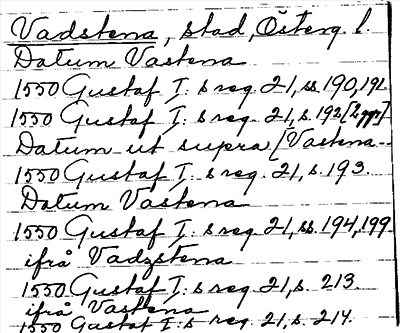 Vadstena, stad, Österg. l.
Datum Vastena
1550 Gustaf I: s reg. 21, ss. 190, 191
1550 Gustaf I: s reg. 21, s. 192 [2 ggr]
Datum ut supra [Vastena--
1550 Gustaf I: s reg. 21, s. 193.
Datum Vastena
1550 Gustaf I: s reg. 21, ss. 194, 199
ifrå Vadzstena
1550 Gustaf I: s reg. 21, s. 213
ifrå Vastena
1550 Gustaf I: s reg. 21, s. 214.